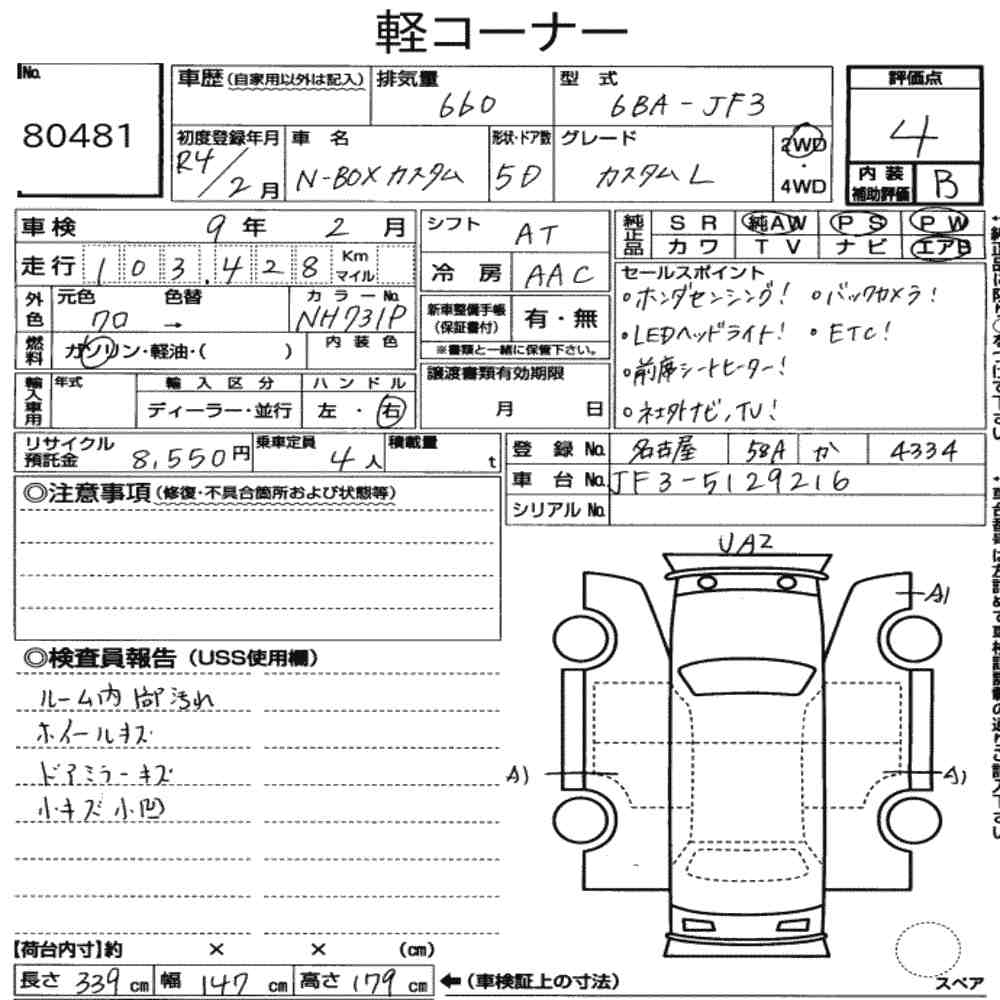 軽コーナー
No.
80481
車歴(自家用以外は記入)
排気量
660
型式
6BA-JF3
評価点
4
初度登録年月
R4/2月
車名
N-BOXカスタム
形状・ドア数
5D
グレード
カスタムL
2WD
・
4WD
内装
補助評価
B
車検 9年 2月
シフト
AT
純正品
SR 純AW PS PW
カワ TV ナビ エアB
走行 103,428 Km マイル
冷房
AAC
セールスポイント
◦ホンダセンシング! ◦バックカメラ!
◦LEDヘッドライト! ◦ETC!
◦前席シートヒーター!
◦社外ナビ,TV!
外色
元色 色替
クロ →
カラーNo.
NH731P
新車整備手帳
(保証書付)
有・無
※書類と一緒に保管下さい。
燃料
ガソリン・軽油・( )
内装色
輸入車用
年式
輸入区分
ディーラー・並行
ハンドル
左・右
譲渡書類有効期限
月 日
リサイクル
預託金
8,550円
乗車定員
4人
積載量
t
登録No. 名古屋 58A か 4334
車台No. JF3-5129216
シリアルNo.
◎注意事項(修復・不具合箇所および状態等)
UA2
A1
◎検査員報告(USS使用欄)
ルーム内部汚れ
ホイールキズ
ドアミラーキズ
小キズ小凹
A1
A1
【荷台内寸】約 × × (cm)
長さ 339cm 幅 147cm 高さ 179cm
←(車検証上の寸法)
スペア